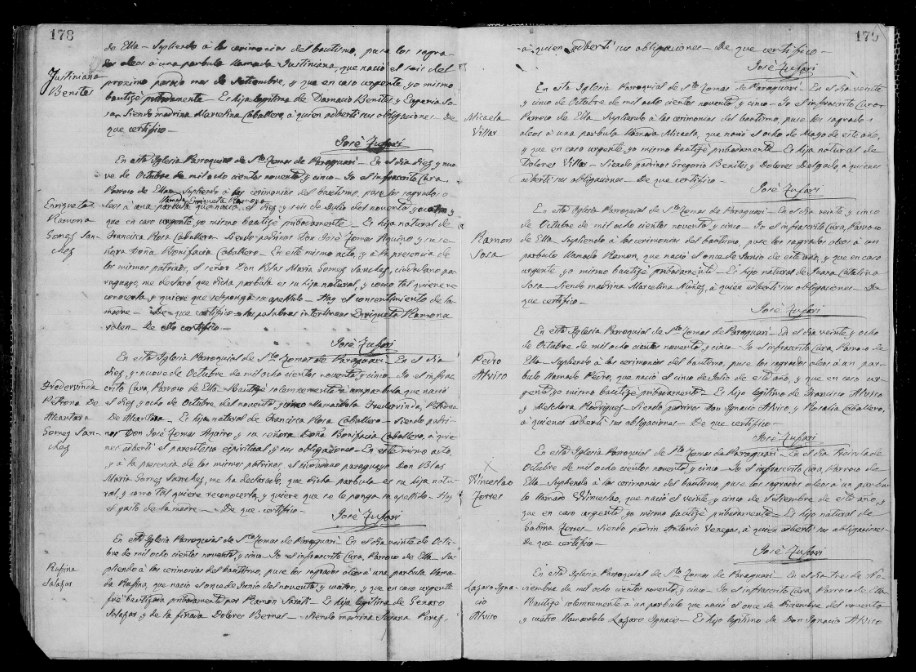 178
da Ella - Supliendo á las ceremonias del bautismo, puse los sagra-
dos oleos á una parbula llamada Justiniana, que nació el seis del
Justiniana
Benites
proximo pasado mes de Setiembre, y que en caso urgente yo mismo
bautizé pribadamente - Es hija legitima de Damacio Benites y Eugenia So-
sa - Siendo madrina Marcelina Caballero á quien adberti sus obligaciones - De
que certifico -
José Zufiori
En esta Iglesia Parroquial de Sto Tomas de Paraguari - En el dia diez y nue-
ve de Octubre de mil ocho cientos noventa y cinco - Yo el infrascrito Cura
Parroco de Ella - Supliendo á las ceremonias del bautismo, puse los sagrados o-
llamada Enriqueta Ramona
Enriqueta
Ramona
Gomes San-
chez
leos á una parbula que nació el diez y seis de Julio del noventa y
que en caso urgente yo mismo bautizé pribadamente - Es hija natural de
Francisca Rosa Caballero - Siendo padrinos Don José Tomas Aquino y su se-
ñora Doña Bonifacia Caballero - En este mismo acto, y á la presencia de
los mismos padrinos, el señor Don Blas Maria Gomes Sanches, ciudadano pa-
raguayo, me declaró que dicha parbula es su hija natural, y como tal quiere re-
conocerla, y quiere que se le ponga su apellido - Hay el consentimiento de la
madre - De que certifico - las palabras interlineas Enriqueta Ramona
valen - De ello certifico -
José Zufiori
En esta Iglesia Parroquial de Sto Tomas de Paraguari - En el dia
diez y nueve de Octubre de mil ocho cientos noventa y cinco - Yo el infras-
crito Cura, Parroco de Ella - Bautizé solemnemente á una parbula que nació
Petrona De
Alcantara
Gomes San-
chez
el diez y ocho de Octubre del noventa y cinco llamandola Petrona
De Alcantara - Es hija natural de Francisca Rosa Caballero - Siendo padri-
nos Don José Tomas Aquino y su señora Doña Bonifacia Caballero, á quie-
nes adberti el parentesco espiritual y sus obligaciones - En este mismo acto,
y á la presencia de los mismos padrinos, el ciudadano paraguayo Don Blas
Maria Gomes Sanches, me ha declarado, que dicha parbula es su hija natu-
ral, y como tal quiere reconocerla, y quiere que se le ponga su apellido - Hay
el gusto de la madre - De que certifico -
José Zufiori
En esta Iglesia Parroquial de Sto Tomas de Paraguari - En el dia veinte de Octu-
bre de mil ocho cientos noventa y cinco - Yo el infrascrito Cura, Parroco de Ella - Su-
Rufina
Salazar
pliendo á las ceremonias del bautismo, puse los sagrados oleos á una parbula llama-
da Rufina, que nació el once de Junio del noventa y cuatro, y que en caso urgente
fué bautizada pribadamente por Ramón - Es hija legitima de Genaro
Salazar y de la finada Dolores Bernal - Siendo madrina Susana Perez,
179
á quien adberti sus obligaciones - De que certifico -
José Zufiori
En esta Iglesia Parroquial de Sto Tomas de Paraguari - En el dia veinte
y cinco de Octubre de mil ocho cientos noventa y cinco - Yo el infrascrito Cura-
Micaela
Villar
Parroco de Ella - Supliendo á las ceremonias del bautismo, puse los sagrados
oleos á una parbula llamada Micaela, que nació el ocho de Mayo de este año,
y que en caso urgente yo mismo bautizé pribadamente - Es hija natural de
Dolores Villar - Siendo padrinos Gregorio Benites y Dolores Delgado, á quienes
adberti sus obligaciones - De que certifico -
José Zufiori
En esta Iglesia Parroquial de Sto Tomas de Paraguari - En el dia veinte y cinco
de Octubre de mil ocho cientos noventa y cinco - Yo el infrascrito Cura, Parroco
Ramon
Sosa
de Ella - Supliendo á las ceremonias del bautismo, puse los sagrados oleos á un
parbulo llamado Ramon, que nació el once de Junio de este año, y que en caso
urgente yo mismo bautizé pribadamente - Es hijo natural de Catalina
Sosa - Siendo madrina Marcelina Nuñez, á quien adberti sus obligaciones - De
que certifico -
José Zufiori
En esta Iglesia Parroquial de Sto Tomas de Paraguari - En el dia veinte y ocho
de Octubre de mil ocho cientos noventa y cinco - Yo el infrascrito Cura, Parroco de
Pedro
Alvico
Ella - Supliendo á las ceremonias del bautismo, puse los sagrados oleos á un par-
bulo llamado Pedro, que nació el cinco de Julio de este año, y que en caso ur-
gente yo mismo bautizé pribadamente - Es hijo legitimo de Alvico
y Rodriguez - Siendo padrinos Don Ignacio Alvico y Rosalia Caballero,
á quienes adberti sus obligaciones - De que certifico -
José Zufiori
En esta Iglesia Parroquial de Sto Tomas de Paraguari - En el dia treinta de
Octubre de mil ocho cientos noventa y cinco - Yo el infrascrito Cura, Parroco de
x
Winceslao
Torres
Ella - Supliendo á las ceremonias del bautismo puse los sagrados oleos á un parbu-
lo llamado Winceslao, que nació el veinte y cinco de Setiembre de este año, y
que en caso urgente yo mismo bautizé pribadamente - Es hijo natural de
Sabina Torres - Siendo padrin Antonio Venegas, á quien adberti sus obligaciones
De que certifico -
José Zufiori
En esta Iglesia Parroquial de Sto Tomas de Paraguari - En el dia tres de No-
viembre de mil ocho cientos noventa y cinco - Yo el infrascrito Cura, Parroco de Ella
Lazaro Igna-
cio
Alvico
Bautizé solemnemente á un parbulo que nació el once de Diciembre del noventa
y cuatro llamandolo Lazaro Ignacio - Es hijo legitimo de Don Ignacio Alvico